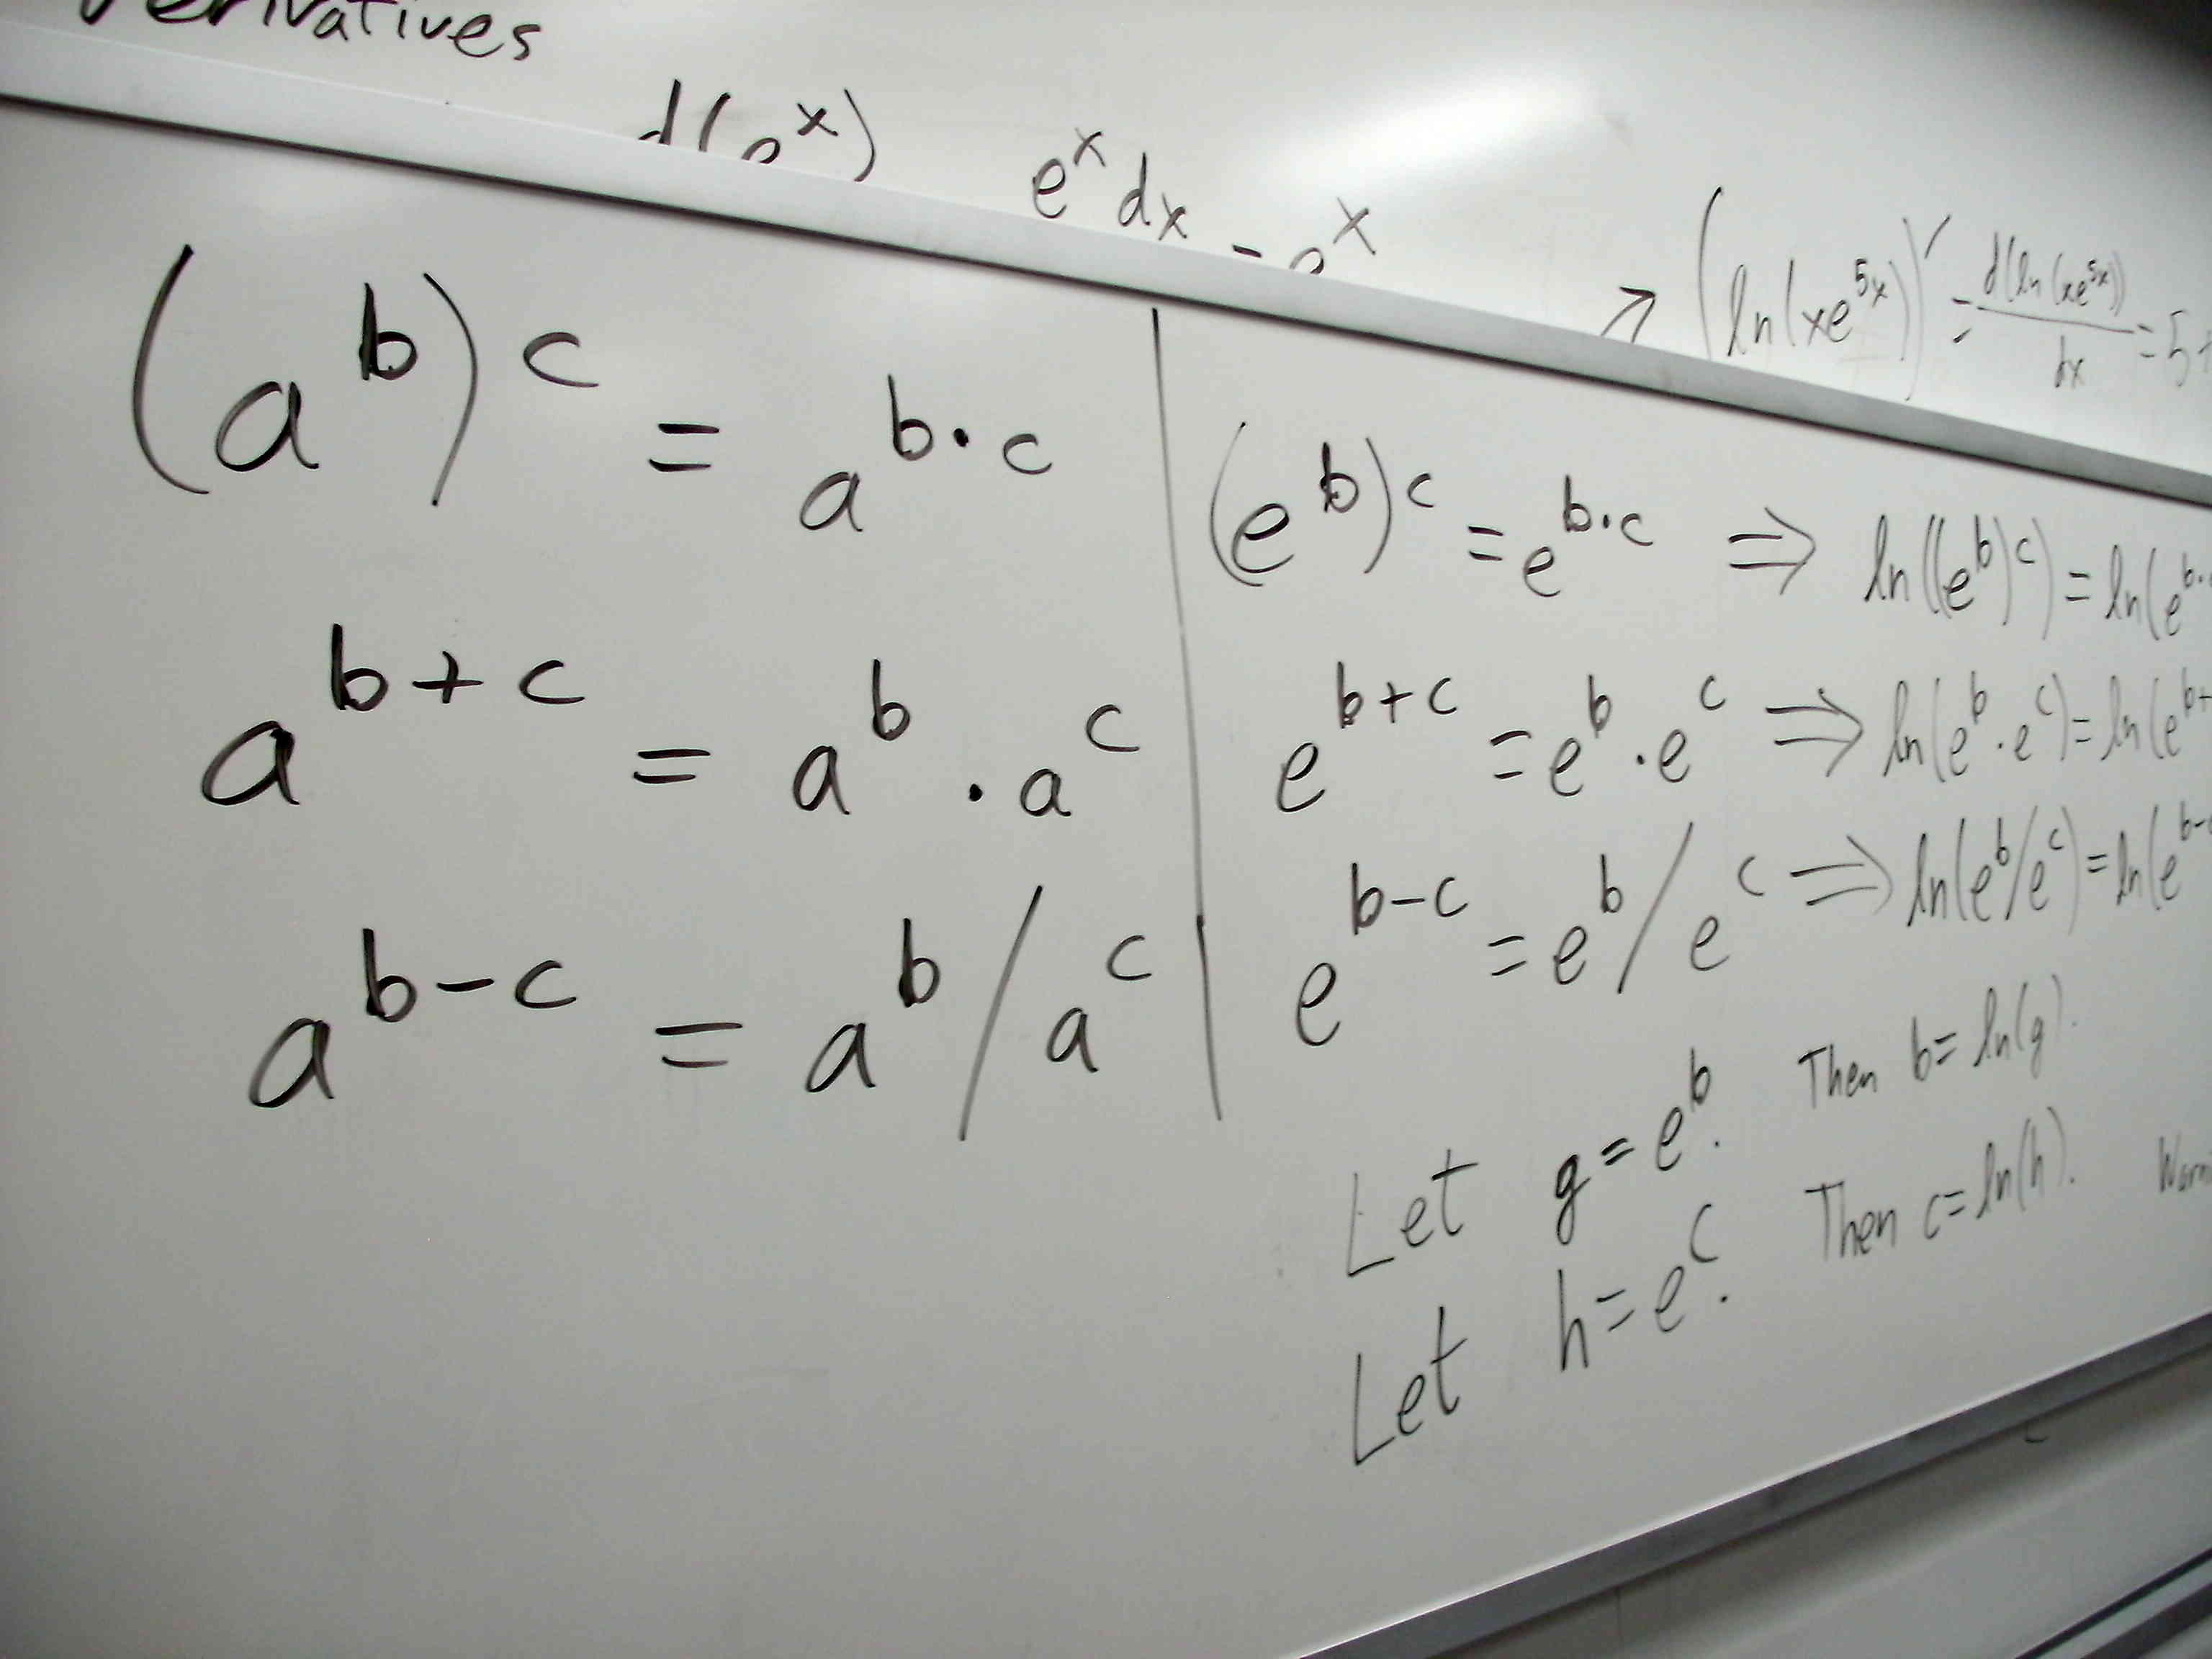 Derivatives
d(e^x) e^x dx = e^x
→ (ln(xe^{5x}))′ = d(ln(xe^{5x}))/dx = 5+
(a^b)^c = a^{b·c}
a^{b+c} = a^b · a^c
a^{b-c} = a^b / a^c
(e^b)^c = e^{b·c} ⇒ ln((e^b)^c) = ln(e^{b·
e^{b+c} = e^b · e^c ⇒ ln(e^b · e^c) = ln(e^{b+
e^{b-c} = e^b / e^c ⇒ ln(e^b/e^c) = ln(e^{b-
Let g = e^b. Then b = ln(g).
Let h = e^c. Then c = ln(h).